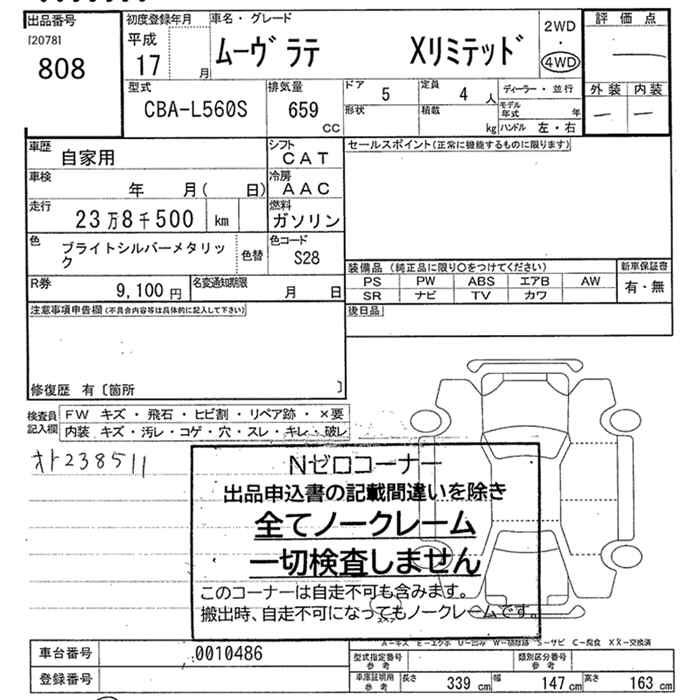 出品番号
[2078]
808
初度登録年月
平成
17 月
車名・グレード
ムーヴ ラテ Xリミテッド
2WD
・
4WD
評価点
型式
CBA-L560S
排気量
659
CC
ドア 5
定員 4 人
形状
積載 kg
ディーラー・並行
モデル年式 年
ハンドル 左・右
外装 内装
車歴
自家用
シフト
CAT
車検
年 月( 日)
冷房
AAC
走行
23万8千500 km
燃料
ガソリン
色
ブライトシルバーメタリッ
ク
色替
色コード
S28
R券
9,100 円
名変通知期限
月 日
セールスポイント(正常に機能するものに限ります)
装備品(純正品に限り○をつけてください)
新車保証書
PS PW ABS エアB AW
SR ナビ TV カワ
有・無
後日品
注意事項申告欄(不具合内容等は具体的に記入して下さい)
修復歴 有〔箇所 〕
検査員
記入欄
FW キズ・飛石・ヒビ割・リペア跡・×要
内装 キズ・汚レ・コゲ・穴・スレ・キレ・破レ
オト238511
Nゼロコーナー
出品申込書の記載間違いを除き
全てノークレーム
一切検査しません
このコーナーは自走不可も含みます。
搬出時、自走不可になってもノークレームです。
車台番号
0010486
登録番号
型式指定番号
参考
類別区分番号
参考
車庫証明用
参考
長さ 339 cm
幅 147 cm
高さ 163 cm